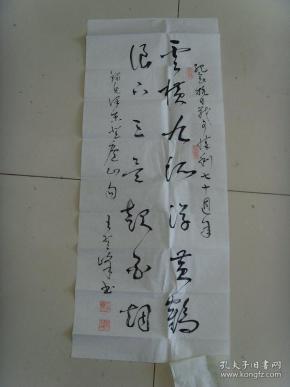 纪念抗日战争胜利七十周年
云横九派浮黄鹤
浪下三吴起白烟
录毛泽东登庐山句
峰书
孔夫子旧书网